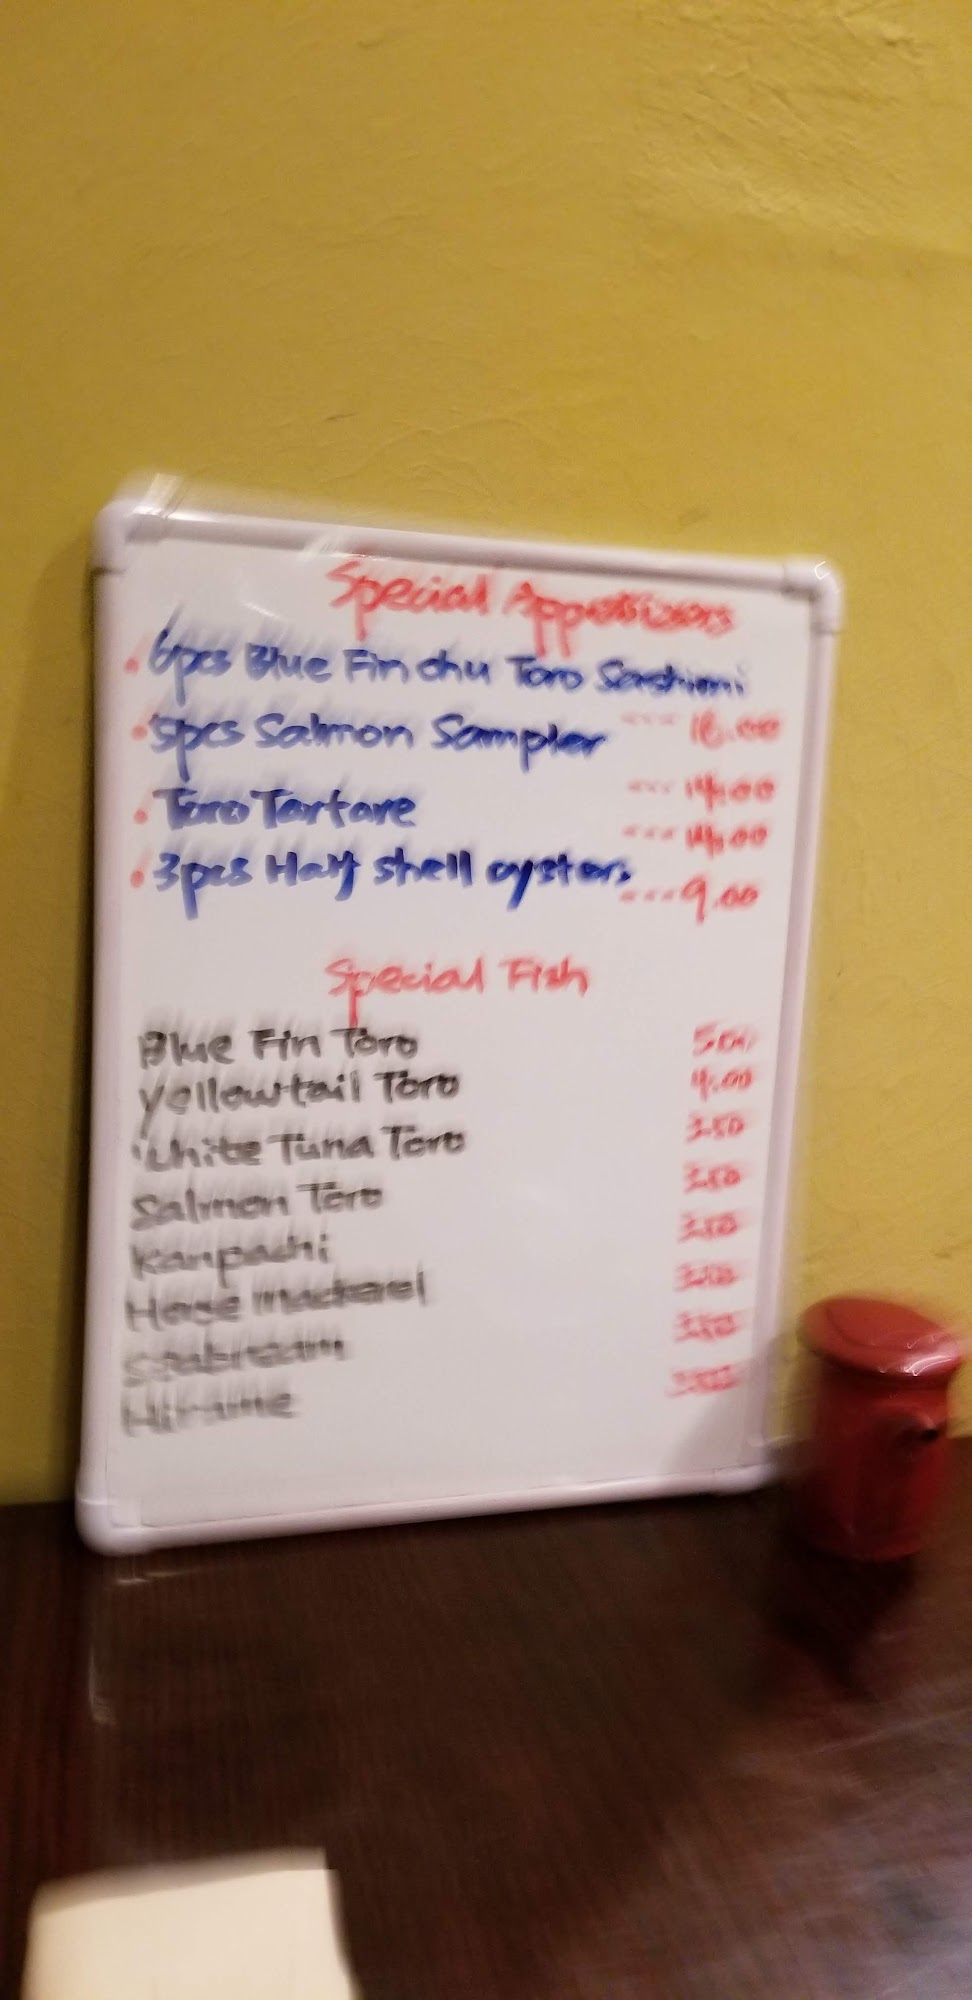 Special Appetizers
• 6pcs Blue Fin chu Toro Sashimi
--- 18.00
• 5pcs Salmon Sampler
--- 14.00
• Toro Tartare
--- 14.00
• 3pcs Half shell oysters
--- 9.00
Special Fish
Blue Fin Toro 5.00
Yellowtail Toro 4.00
White Tuna Toro 3.50
Salmon Toro 3.50
Kanpachi 3.50
Horse mackerel
Seabream
Hirame